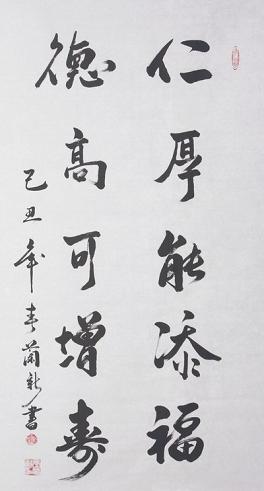 仁厚能添福
德高可增寿
己丑年春兰新书